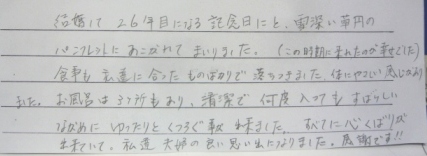 結婚して26年目になる記念日にと、雪深い草円の
パンフレットにあこがれてまいりました。(この時期に来れたのが幸せでした)
食事も私達に合ったもの ばかりで落ちつきました。体にやさしい感じがあり
ました。お風呂は3ヶ所もあり、清潔で何度入ってもすばらしい
ながめにゆったりとくつろぐ事が出来ました。すべてに心くばりが
出来ていて、私達夫婦の良い思い出になりました。感謝です!!